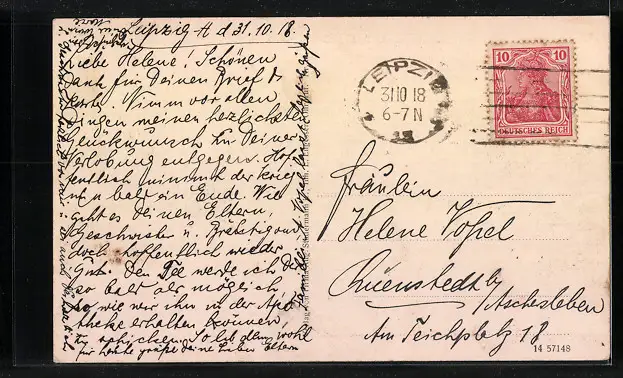 Leipzig-A d 31.10.18.
Liebe Helene! Schönen
Dank für Deinen Brief &
Karte. Nimm vor allen
Dingen meinen herzlichsten
Glückwunsch zu Deiner
Verlobung entgegen. Hof-
fentlich nimmt der Krieg
nun bald ein Ende. Wie
geht es Deinen Eltern,
Geschwister u. Bräutigam
doch hoffentlich wieder
gut. Den Tee werde ich Dir
so bald als möglich,
so, wie wir ihn in der Apo-
theke erhalten können,
schicken. So leb denn wohl
für heute grüße Deine lieben Eltern
LEIPZIG
31 10 18
6-7 N
10 10
DEUTSCHES REICH
Fräulein
Helene Vopel
Quenstedt b/
Aschersleben
Am Teichplatz 18
14 57148